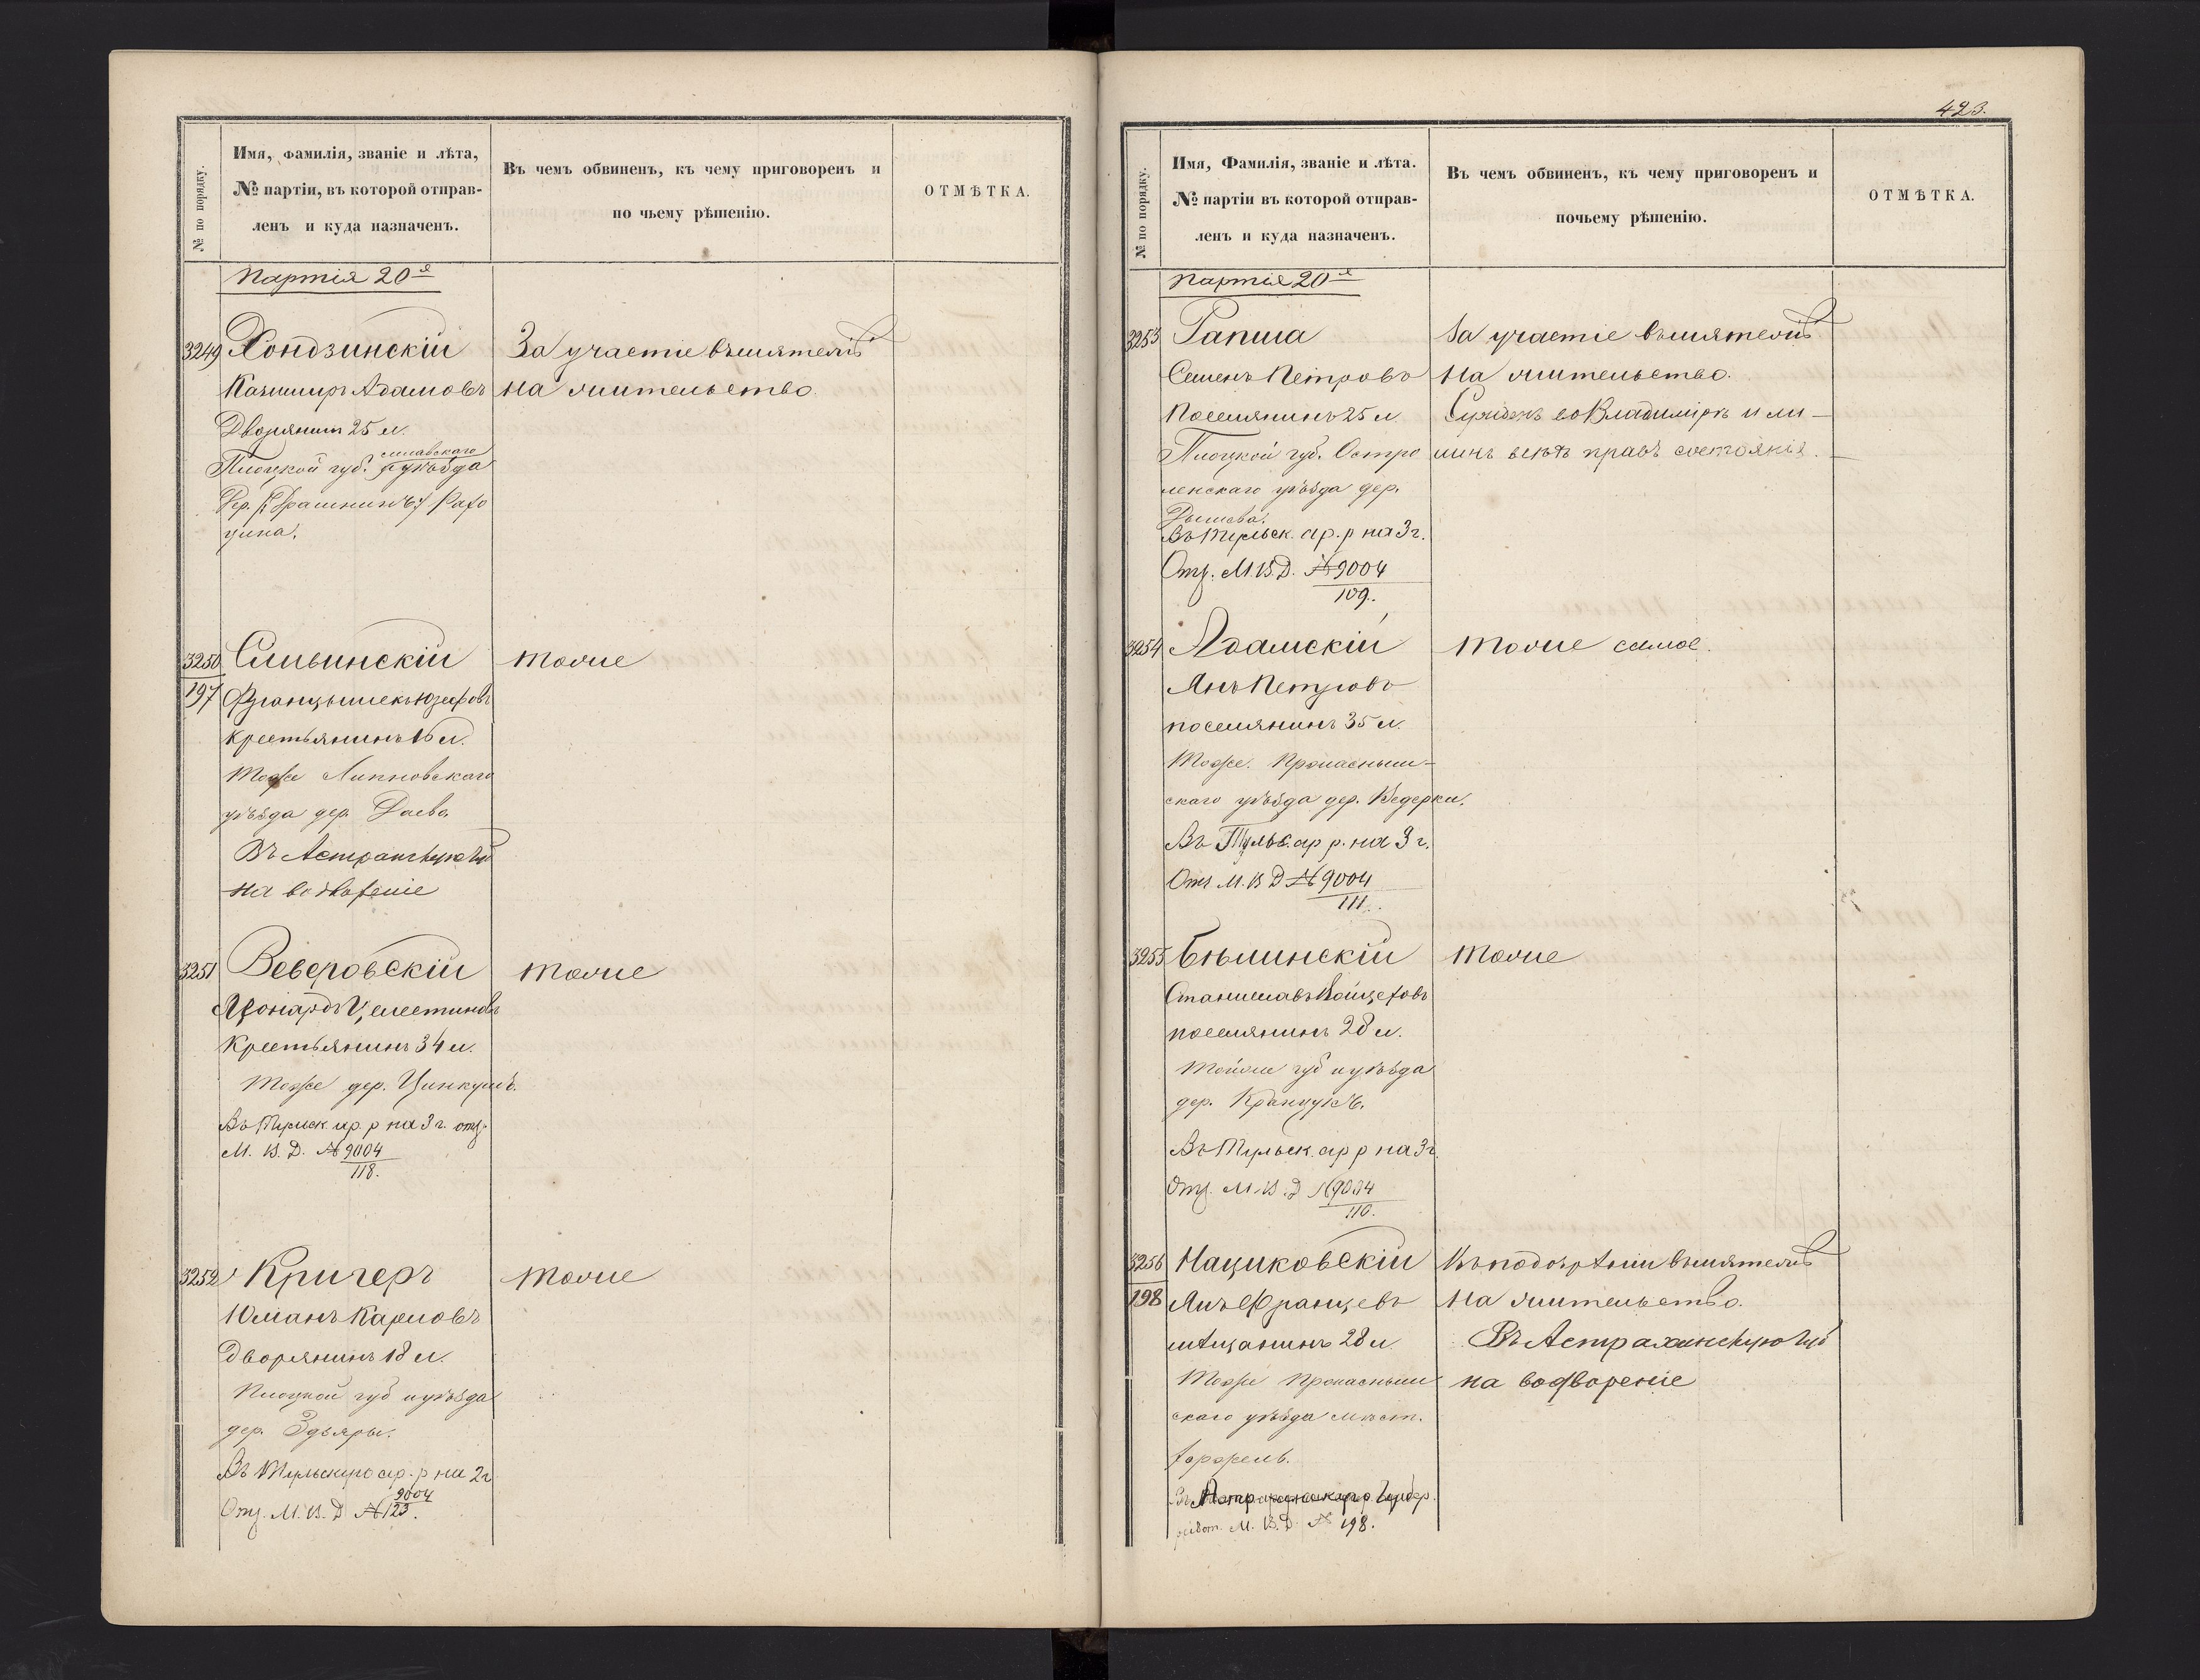 № по порядку.
Имя, Фамилія, званіе и лѣта,
№ партіи, въ которой отправ-
ленъ и куда назначенъ.
Въ чемъ обвиненъ, къ чему приговоренъ и
по чьему рѣшенію.
ОТМѢТКА.
Партія 20я
3249 Хондзинскій За участіе въ мятежѣ
Казимиръ Адамовъ на жительство.
Дворянинъ 25 л.
Плоцкой губ. млавскаго уѣзда
Дер.
3250 Сливинскій тоже
197 Францышекъ Юзефовъ
крестьянинъ 16 л.
Тоже Липновскаго
уѣзда дер.
Въ Астраханскую губ
на водвореніе
3251 Веверовскій тоже
Леонардъ Целестиновъ
Крестьянинъ 34 л.
Тоже дер.
Въ Тульск. ар. р на 3 г. отз.
М. В. Д. № 9004
118.
3252 Кригеръ тоже
Юліанъ Карловъ
Дворянинъ 18 л.
Плоцкой губ и уѣзда
дер. Здзяры.
Въ Тульскую ар. р на 2 г
Отз. М. В. Д № 9004
123.
423.
№ по порядку.
Имя, Фамилія, званіе и лѣта.
№ партіи въ которой отправ-
ленъ и куда назначенъ.
Въ чемъ обвиненъ, къ чему приговоренъ и
почьему рѣшенію.
ОТМѢТКА.
Партія 20я
3253 Рапша За участіе въ мятежѣ
Семенъ Петровъ на жительство.
Поселянинъ 25 л. Сужденъ во Владимірѣ и ли-
Плоцкой губ. Остро шенъ всѣхъ правъ состоянія.
ленскаго уѣзда дер.
Въ Тульск. ар. р на 3 г.
Отз. М. В. Д. № 9004
109.
3254 Адамскій тоже самое.
Янъ Петровъ
поселянинъ 35 л.
Тоже. Прснасныш-
скаго уѣзда дер. Ведерки.
Въ Тульс. ар р. на 3 г.
Отз М. В Д № 9004
111.
3255 Бѣлинскій тоже
Станиславъ Войцеховъ
поселянинъ 28 л.
Тойже губ и уѣзда
дер.
Въ Тульск. ар р на 3 г.
Отз. М. В. Д № 9004
110.
3256 Нациковскій Въ подозрѣніи въ мятежѣ
198 Янъ Францевъ на жительство.
мѣщанинъ 28 л. Въ Астраханскую губ
Тоже Праснасныш на водвореніе
скаго уѣзда мѣст.
Хоржель.
Въ Астраханскую Губер.
М. В. Д № 198.